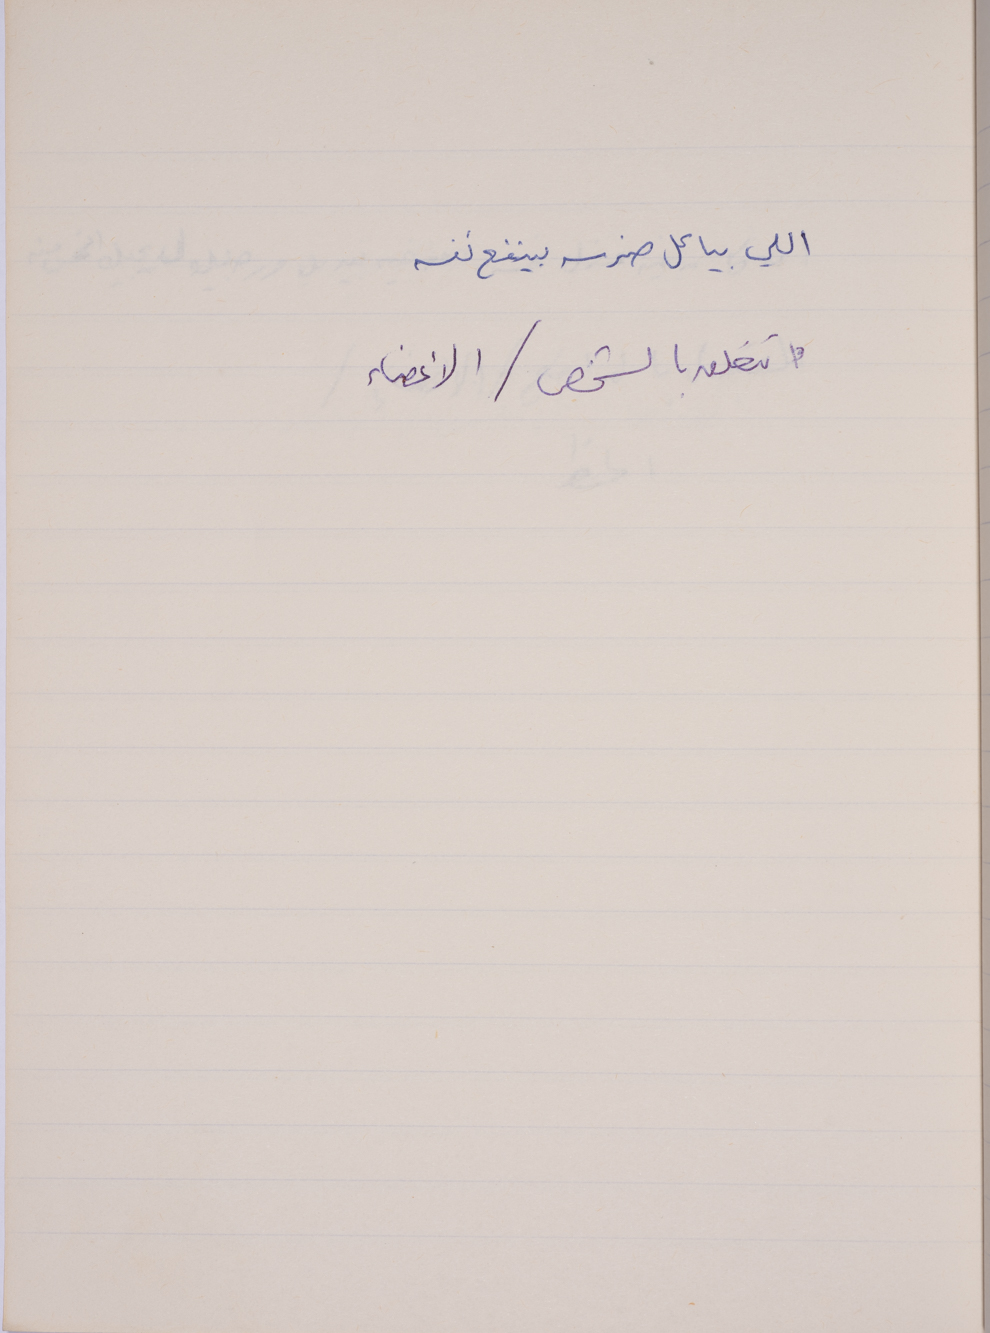 اللي بياكل ضرسه بينفع نفسه
تتعلق بالشخص / الأعضاء